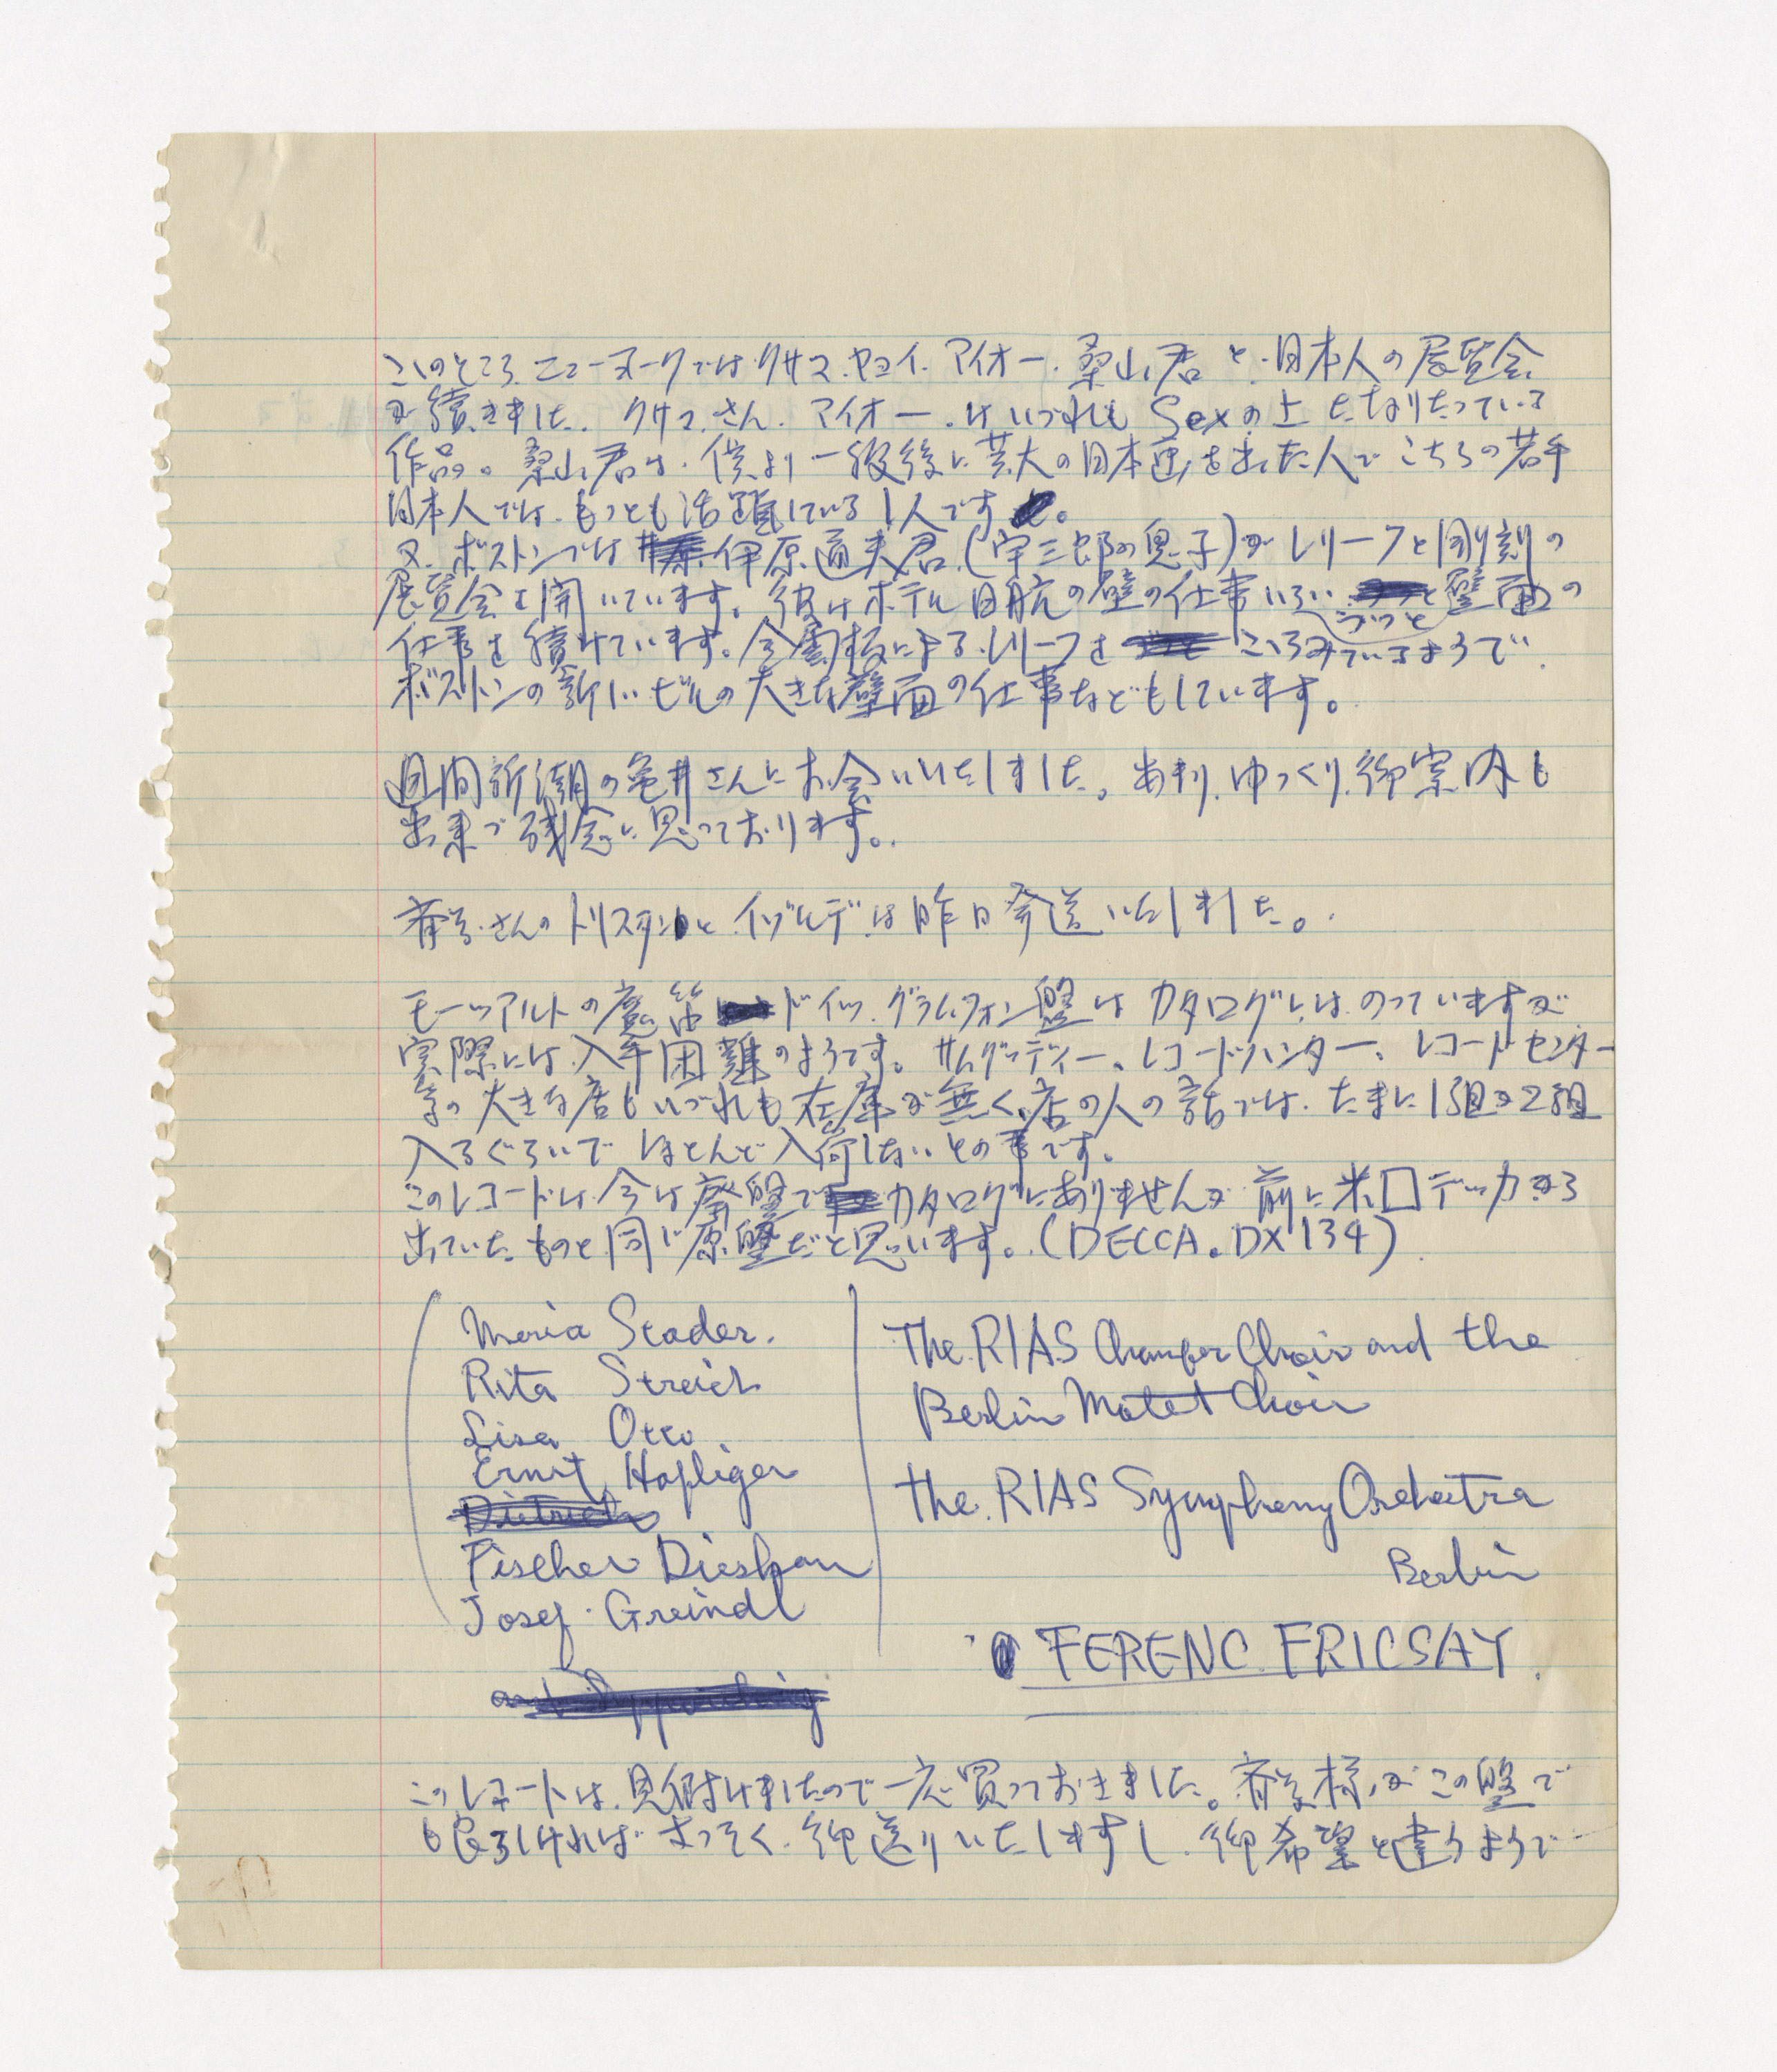 このところ、ニューヨークではクサマ.ヤヨイ.アイオー.桑山君と.日本人の展覧会
が続きました.クサマさん.アイオー.はいづれも Sexの上になりたっている
作品。桑山君は.僕より一級後に芸大の日本画を出た人でこちらの若手
日本人では.もっとも活躍している1人です。
又.ボストンでは伊原通夫君.(宇三郎の息子)がレリーフと彫刻の
展覧会を開いています。彼はホテル日航の壁の仕事いらいずっと壁面の
仕事を続けています。金属板によるレリーフをこころみているようで.
ボストンの新しいビルの大きな壁面の仕事などもしています。
週間新潮の亀井さんにお会いいたしました。あまり.ゆっくり.御案内も
出来ず残念に思っております。
さんのトリスタンと.イゾルデは昨日発送いたしました。
モーツアルトの魔笛ドイツ.グラムフォン盤はカタログにはのっていますが
実際には入手困難のようです。サムグッディー、レコードハンター、レコードセンター
等の大きな店もいづれも在庫が無く、店の人の話では.たまに1組か2組
入るぐらいでほとんど入荷しないとの事です。
このレコードは今は廃盤でカタログにありませんが前に米国デッカから
出ていたものと同じ原盤だと思います。(DECCA. DX 134)
Maria Stader.
Rita Streich
Lisa Otto
Ernst Hafliger
Dietrich
Fischer Dieskau
Josef Greindl
The RIAS Chamber Choir and the
Berlin Motet Choir
The RIAS Symphony Orchestra
Berlin
FERENC FRICSAY.
このレコードは.見付けましたので一応買っておきました。様がこの盤で
も良ろしければさっそく.御送りいたしますし.御希望と違うようで